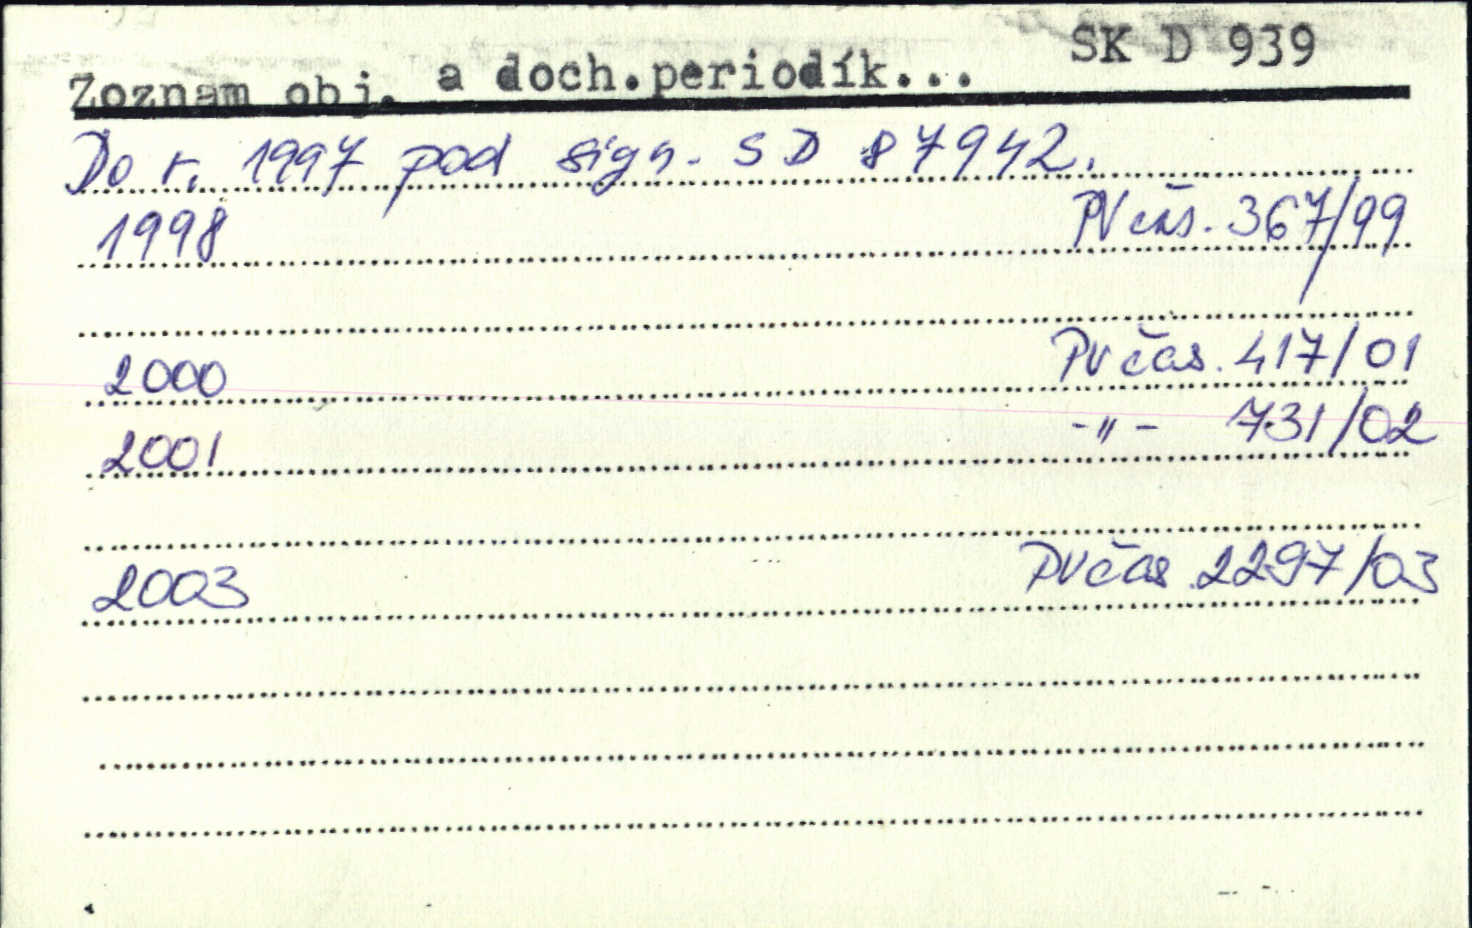 Zoznam obj. a doch.periodík... SK D 939
Do r. 1997 pod sign. SD 87942.
1998 PV čas. 367/99
2000 PV čas. 417/01
2001 -"- 731/02
2003 PV čas. 2297/03